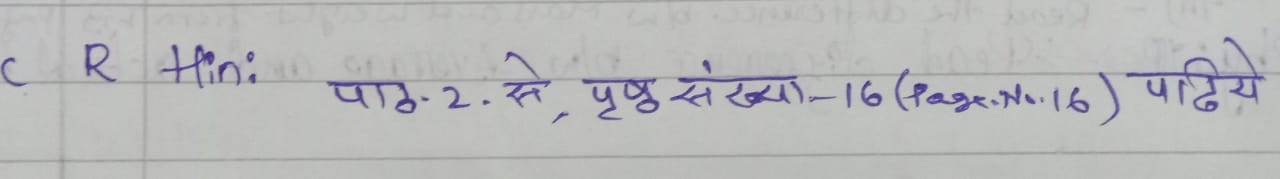 C R Hin: पाठ. 2. से, पृष्ठ संख्या - 16 (Page. No. 16) पढिये